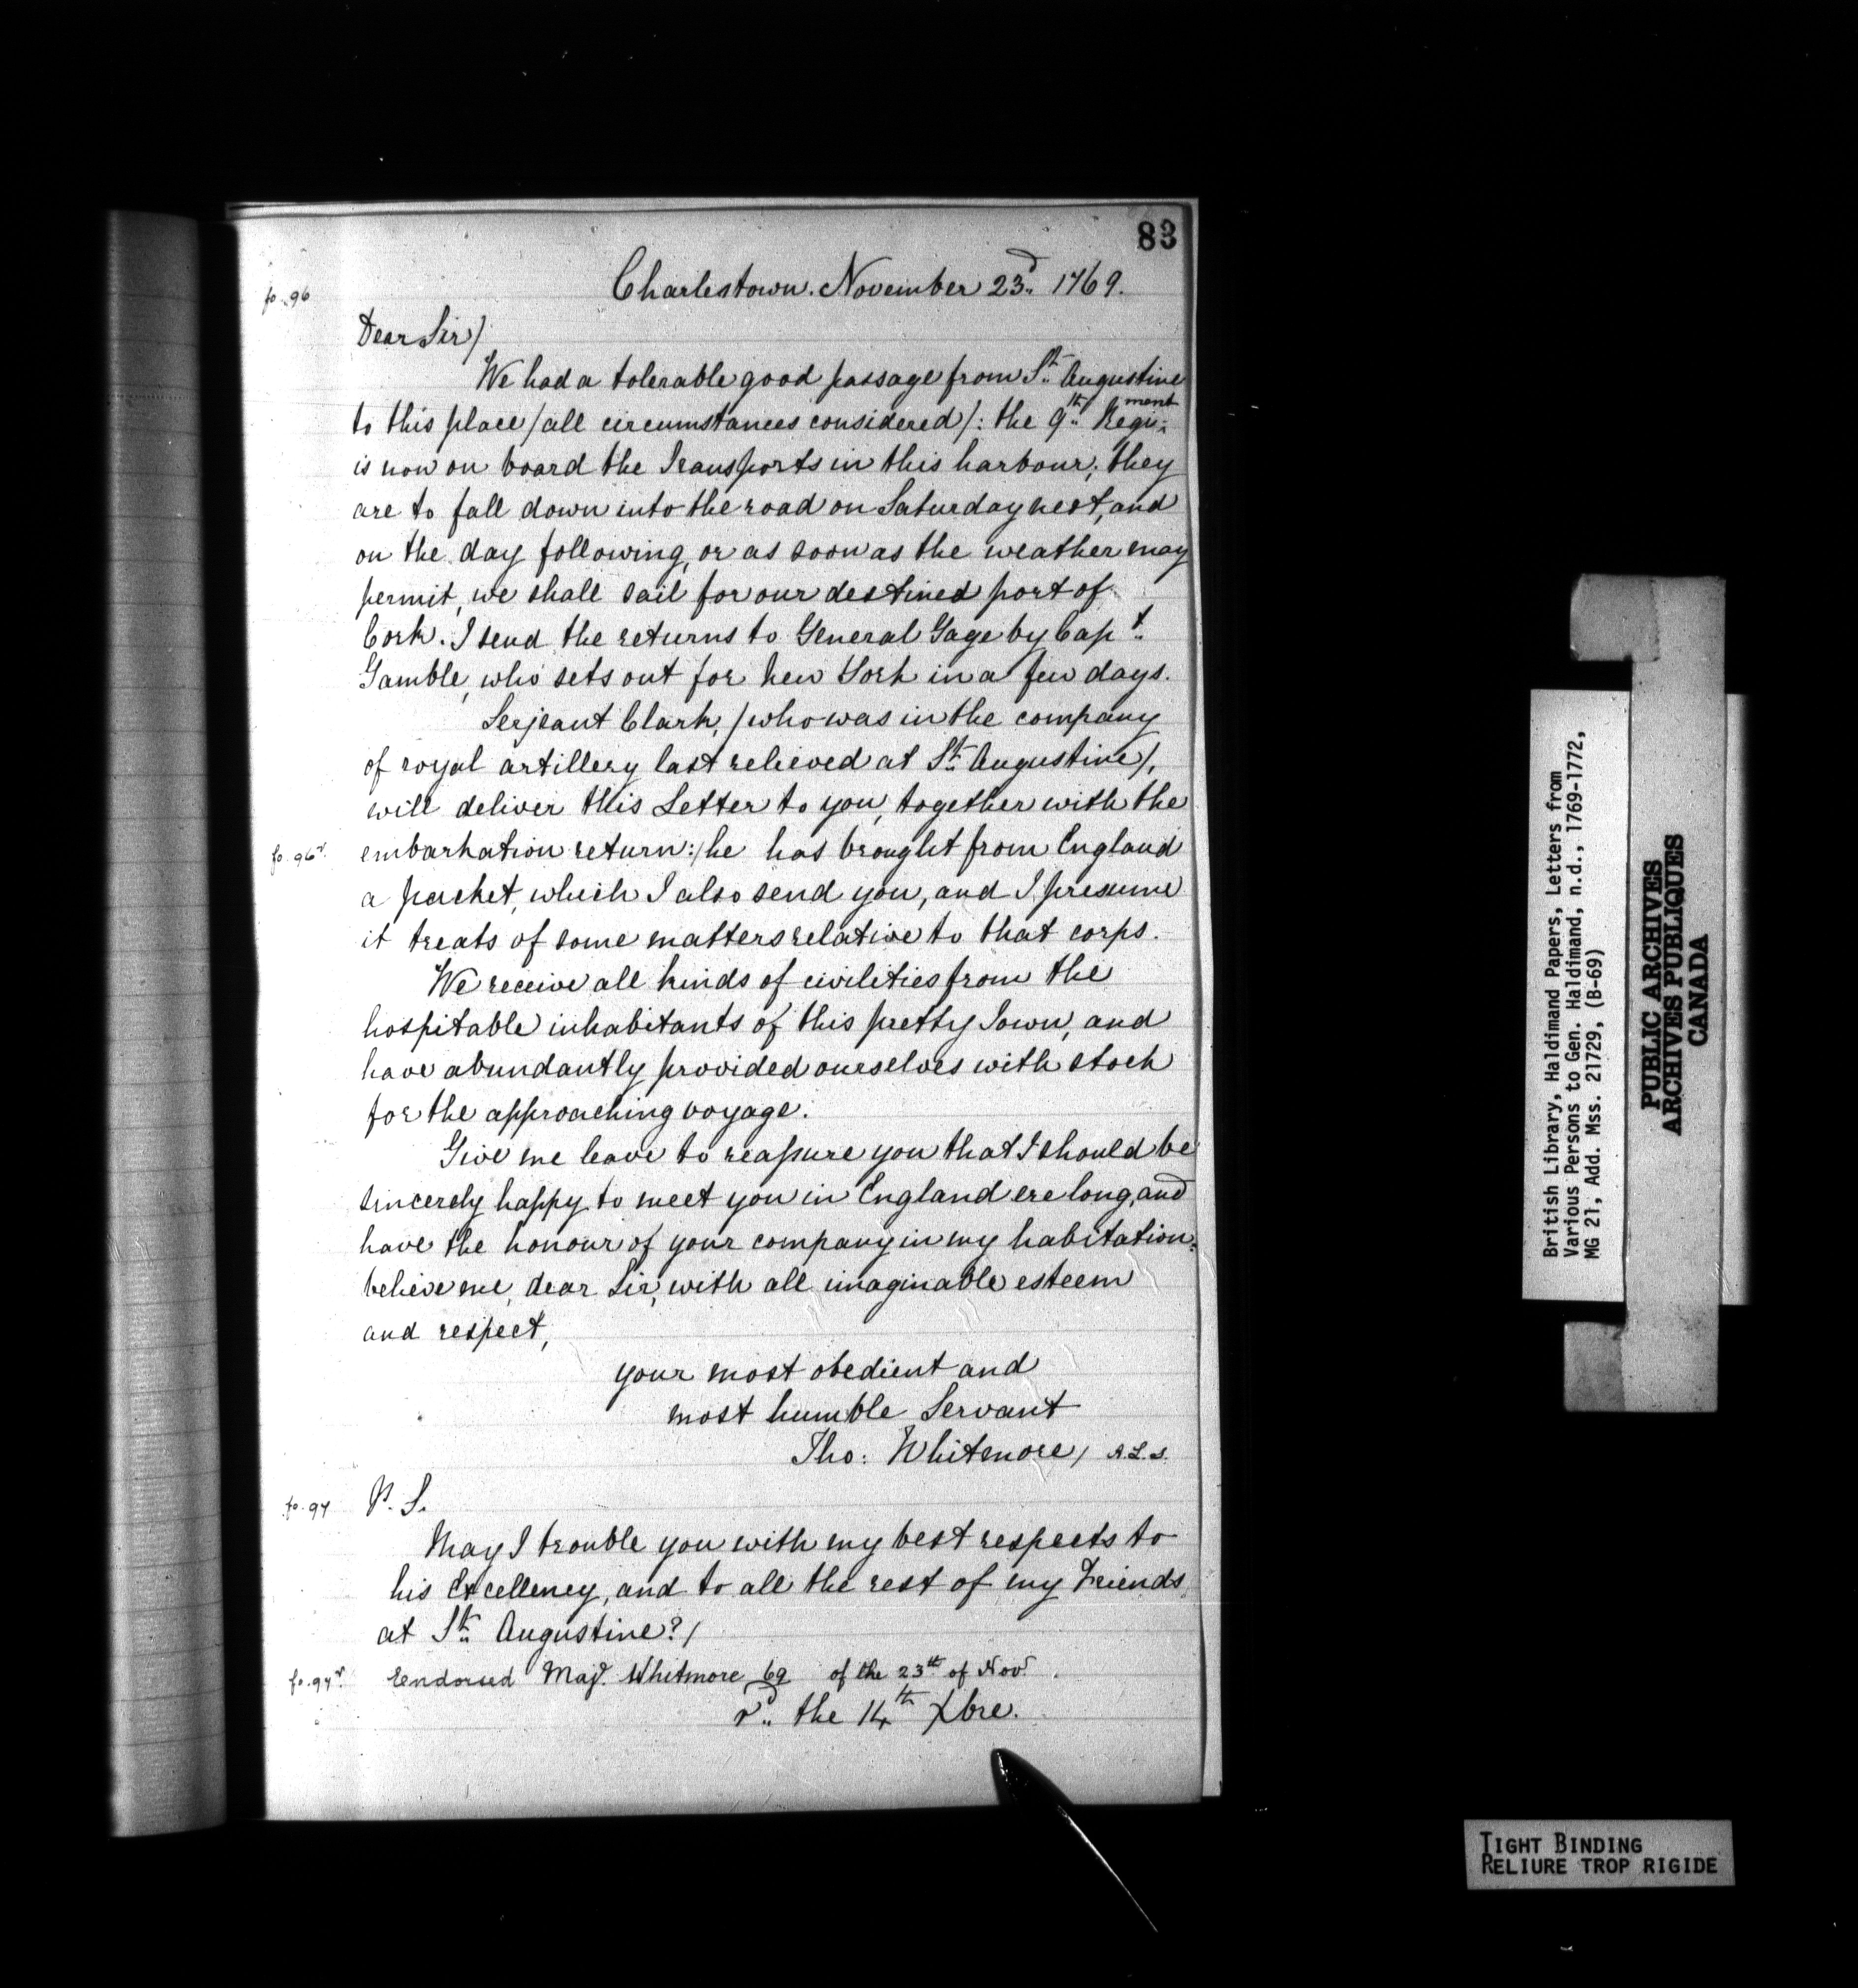 83
fo. 96
Charlestown. November 23d. 1769.
Dear Sir/
We had a tolerable good passage from St. Augustine
to this place /all circumstances considered/: the 9th. Regiment
is now on board the Transports in this harbour; they
are to fall down into the road on Saturday next, and
on the day following, or as soon as the weather may
permit, we shall sail for our destined port of
Cork. I send the returns to General Gage by Capt.
Gamble, who sets out for New York in a few days.
Serjeant Clark, /who was in the company
of royal artillery last relieved at St. Augustine/,
will deliver this Letter to you, together with the
fo. 96v. embarkation return:/he has brought from England
a packet, which I also send you, and I presume
it treats of some matters relative to that corps.
We receive all kinds of civilities from the
hospitable inhabitants of this pretty Town, and
have abundantly provided ourselves with stock
for the approaching voyage.
Give me leave to reassure you that I should be
sincerely happy to meet you in England ere long, and
have the honour of your company in my habitation:
believe me, dear Sir, with all imaginable esteem
and respect,
your most obedient and
most humble Servant
Tho: Whitmore/ A.L.S.
fo. 97 P. S.
May I trouble you with my best respects to
his Excellency, and to all the rest of my Friends
at St. Augustine?/
fo. 97v. Endorsed Majr. Whitmore 69 of the 23th of Novr.
rd.. the 14th Xbre.
British Library, Haldimand Papers, Letters from
Various Persons to Gen. Haldimand, n.d., 1769-1772,
MG 21, Add. Mss. 21729, (B-69)
PUBLIC ARCHIVES
ARCHIVES PUBLIQUES
CANADA
TIGHT BINDING
RELIURE TROP RIGIDE